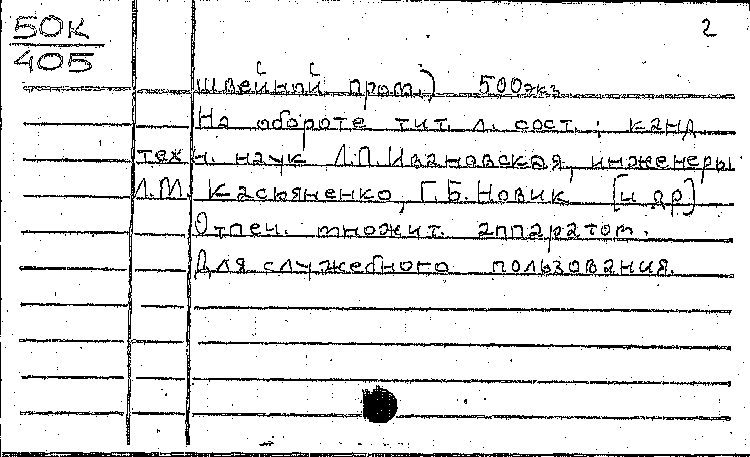 50К
405
2
швейной пром.) 500экз
На обороте тит. л. сост.: канд.
техн. наук Л.П.Ивановская, инженеры
Л.М. Касьяненко, Г.Б.Новик [и др]
Отпеч. множит. аппаратом.
Для служебного пользования.